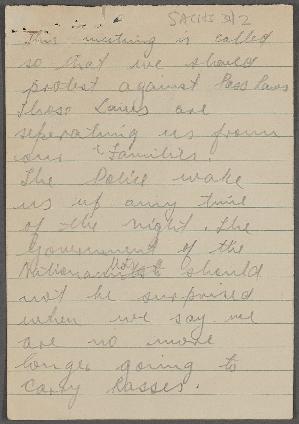 SACHS 3/2
This meeting is called
so that we should
protest against Pass Laws
Those Laws are
seperating us from
our Families.
The Police wake
us up any time
of the night. The
Government of the
Nationa should
not be surprised
when we say we
are no more
longer going to
Carry Passes.